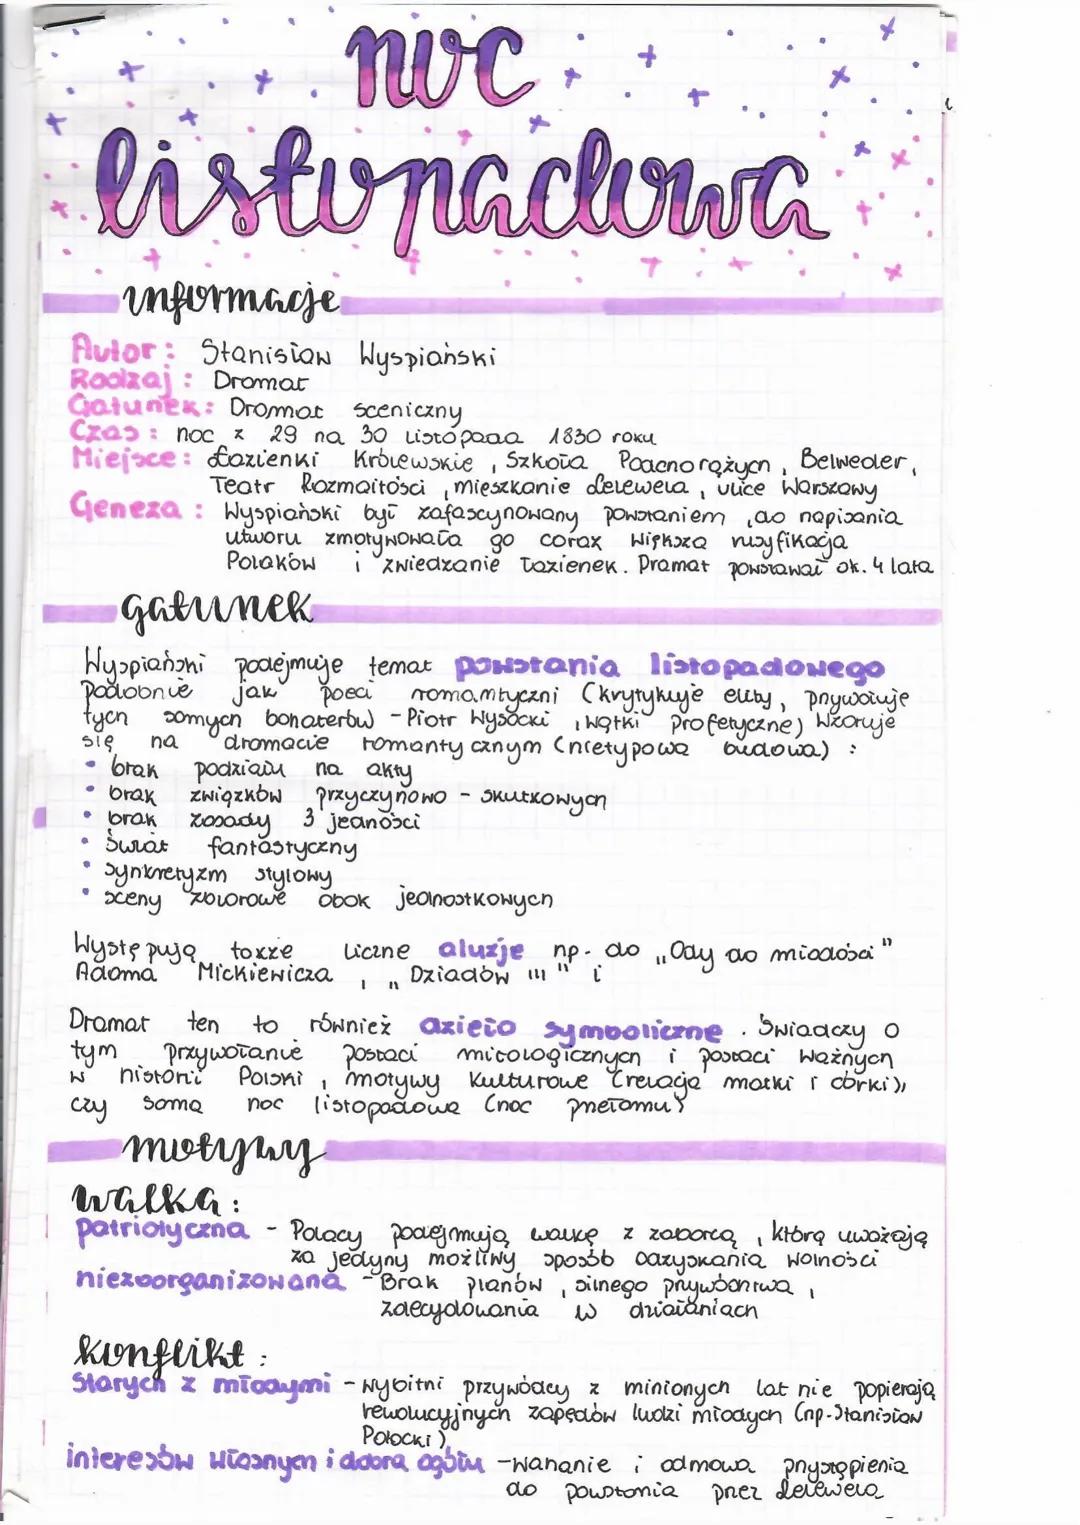 noc
listopadowa
informacje
Autor: Stanisław Wyspiański
Rodzaj: Dramat
Gatunek: Dramat sceniczny
Czas: noc z 29 na 30 listopada 1830 roku
Miejsce: Łazienki Królewskie, Szkoła Podchorążych, Belweder,
Teatr Rozmaitości, mieszkanie Lelewela, ulice Warszawy
Geneza: Wyspiański był zafascynowany powstaniem, do napisania
utworu zmotywowała go coraz większa rusyfikacja
Polaków i zwiedzanie Łazienek. Dramat powstawał ok. 4 lata
gatunek
Wyspiański podejmuje temat powstania listopadowego
podobnie jak poeci romantyczni (krytykuje elity, przywołuje
tych samych bohaterów - Piotr Wysocki, wątki profetyczne) Wzoruje
się na dramacie romantycznym (nietypowa budowa):
• brak podziału na akty
• brak związków przyczynowo - skutkowych
• brak zasady 3 jedności
• świat fantastyczny
• synkretyzm stylowy
• sceny zbiorowe obok jednostkowych
Występują także liczne aluzje np. do „Ody do młodości"
Adama Mickiewicza, „Dziadów III" i
Dramat ten to również dzieło symboliczne. Świadczy o
tym przywołanie postaci mitologicznych i postaci ważnych
w historii Polski, motywy kulturowe (relacja matki i córki),
czy sama noc listopadowa (noc przełomu)
motywy
walka:
patriotyczna - Polacy podejmują walkę z zaborcą, którą uważają
za jedyny możliwy sposób odzyskania wolności
niezorganizowana - Brak planów, silnego przywództwa,
zdecydowania w działaniach
konflikt:
Starych z młodymi - wybitni przywódcy z minionych lat nie popierają
rewolucyjnych zapędów ludzi młodych (np. Stanisław
Potocki)
interesów własnych i dobra ogółu - wahanie i odmowa przystąpienia
do powstania przez Lelewela